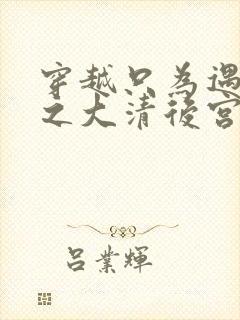 穿越只為遇
之大清後宮
呂業輝